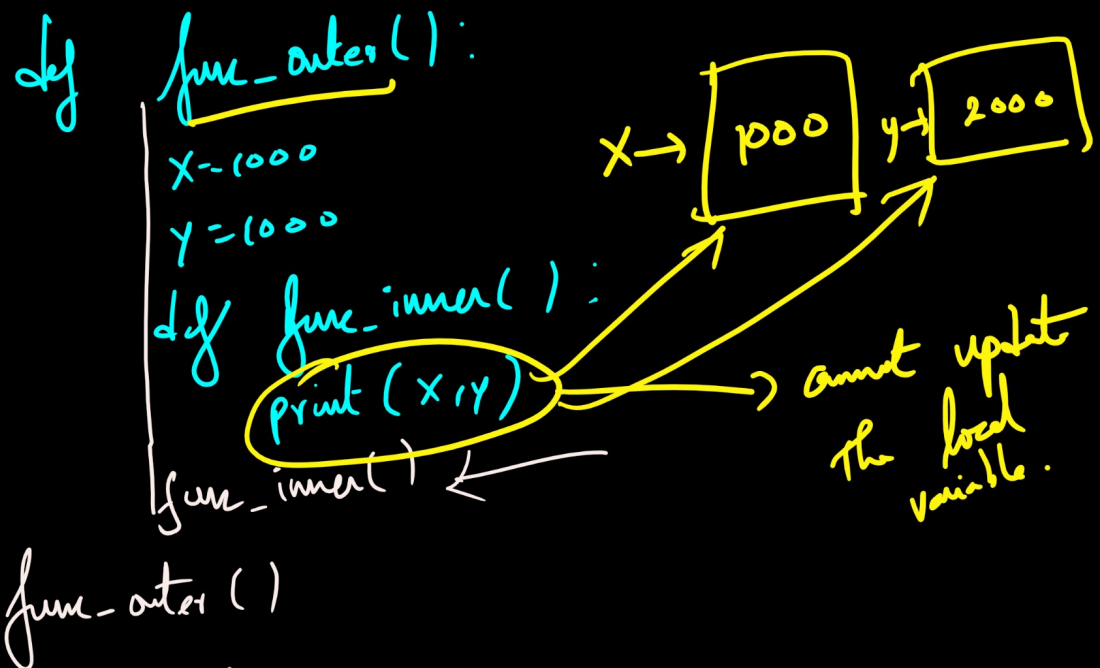 def func_outer():
X=1000
Y=1000
def func_inner():
print(X,Y)
func_inner()
func_outer()
X→ 1000
y→ 2000
cannot update
The local
variable.